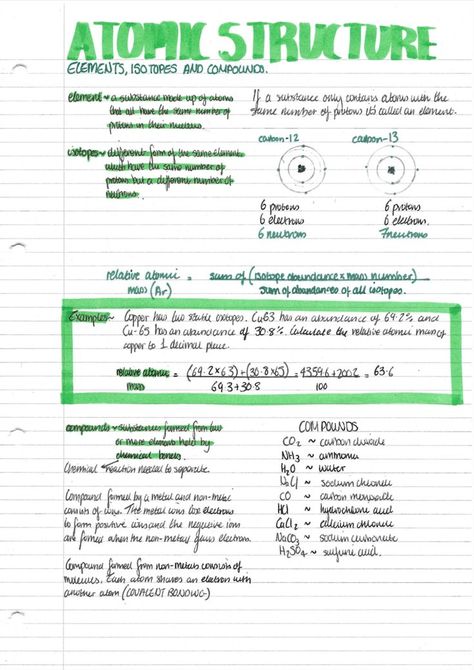 ATOMIC STRUCTURE
ELEMENTS, ISOTOPES AND COMPOUNDS.
element ~ a substance made up of atoms
that all have the same number of
protons in their nucleus.
If a substance only contains atoms with the
same number of protons its called an element.
isotopes ~ different form of the same element
which have the same number of
protons but a different number of
neutrons.
carbon-12
6 protons
6 electrons
6 neutrons
carbon-13
6 protons
6 electrons.
7 neutrons
relative atomic mass (Ar) = sum of (isotope abundance × mass number)
sum of abundances of all isotopes.
Examples ~ Copper has two stable isotopes. Cu63 has an abundance of 69.2% and
Cu-65 has an abundance of 30.8%. Calculate the relative atomic mass of
copper to 1 decimal place.
relative atomic mass = (69.2×63)+(30.8×65) = 4359.6+2002 = 63.6
69.3+30.8 100
compounds ~ substances formed from two
or more elements held by
chemical bonds.
Chemical reaction needed to separate.
Compound formed by a metal and non-metal
consists of ions. The metal ions lose electrons
to form positive ions and the negative ions
are formed when the non-metals gains electrons.
Compound formed from non-metals consists of
molecules. Each atom shares an electron with
another atom (COVALENT BONDING)
COMPOUNDS
CO2 ~ carbon dioxide
NH3 ~ ammonia
H2O ~ water
NaCl ~ sodium chloride
CO ~ carbon monoxide
HCl ~ hydrochloric acid
CaCl2 ~ calcium chloride
NaCO3 ~ sodium carbonate
H2SO4 ~ sulfuric acid.